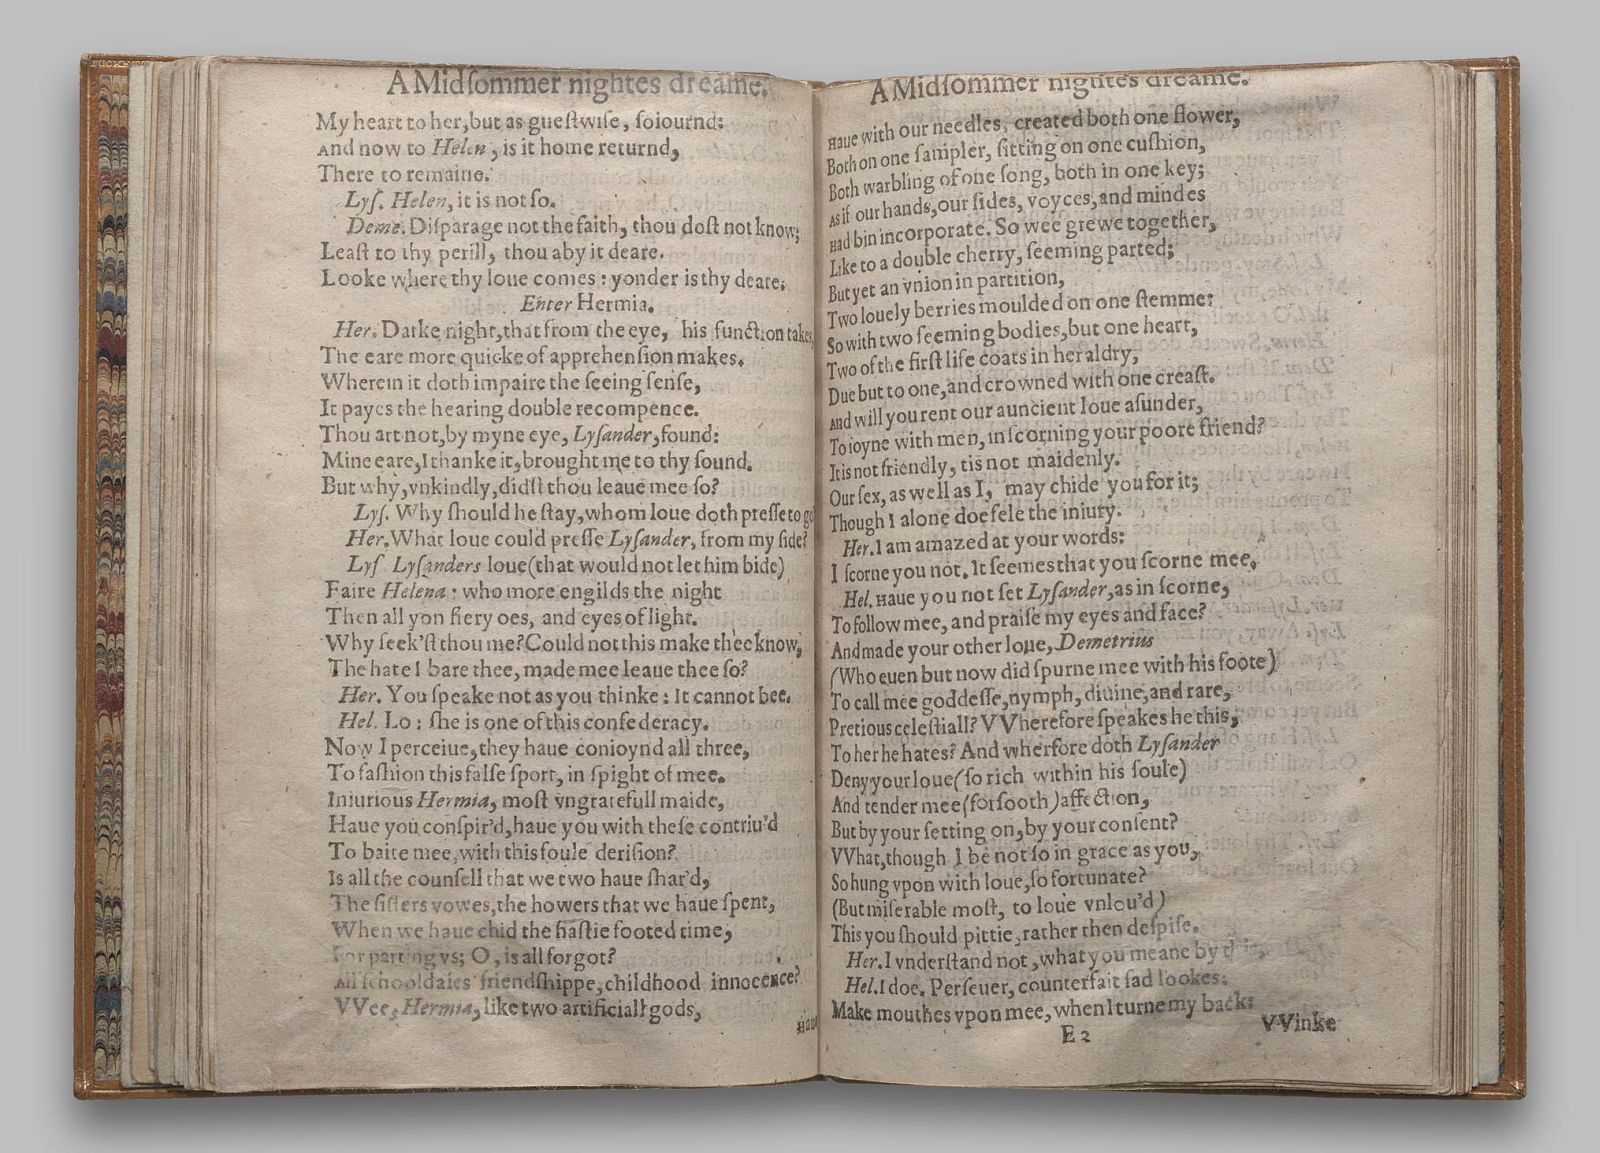 A Midſommer nightes dreame.
My heart to her, but as gueſtwiſe, ſoiournd:
And now to Helen, is it home returnd,
There to remaine.
Lyſ. Helen, it is not ſo.
Deme. Diſparage not the faith, thou doſt not know;
Leaſt to thy perill, thou aby it deare.
Looke where thy loue comes: yonder is thy deare.
Enter Hermia.
Her. Darke night, that from the eye, his function takes,
The eare more quicke of apprehenſion makes.
Wherein it doth impaire the ſeeing ſenſe,
It payes the hearing double recompence.
Thou art not, by myne eye, Lyſander, found:
Mine eare, I thanke it, brought me to thy ſound.
But why, vnkindly, didſt thou leaue mee ſo?
Lyſ. Why ſhould he ſtay, whom loue doth preſſe to go
Her. What loue could preſſe Lyſander, from my ſide?
Lyſ Lyſanders loue (that would not let him bide)
Faire Helena: who more engilds the night
Then all yon fiery oes, and eyes of light.
Why ſeek'ſt thou me? Could not this make thee know,
The hate I bare thee, made mee leaue thee ſo?
Her. You ſpeake not as you thinke: It cannot bee.
Hel. Lo: ſhe is one of this confederacy.
Now I perceiue, they haue conioynd all three,
To faſhion this falſe ſport, in ſpight of mee.
Iniurious Hermia, moſt vngratefull maide,
Haue you conſpir'd, haue you with theſe contriu'd
To baite mee, with this foule deriſion?
Is all the counſell that we two haue ſhar'd,
The ſiſters vowes, the howers that we haue ſpent,
When we haue chid the haſtie footed time,
For parting vs; O, is all forgot?
All ſchooldaies friendſhippe, childhood innocence?
VVee, Hermia, like two artificiall gods,
Haue
A Midſommer nightes dreame.
Haue with our needles, created both one flower,
Both on one ſampler, ſitting on one cuſhion,
Both warbling of one ſong, both in one key;
As if our hands, our ſides, voyces, and mindes
Had bin incorporate. So wee grewe together,
Like to a double cherry, ſeeming parted;
But yet an vnion in partition,
Two louely berries moulded on one ſtemme:
So with two ſeeming bodies, but one heart,
Two of the firſt life coats in heraldry,
Due but to one, and crowned with one creaſt.
And will you rent our auncient loue aſunder,
To ioyne with men, in ſcorning your poore friend?
It is not friendly, tis not maidenly.
Our ſex, as well as I, may chide you for it;
Though I alone doe fele the iniury.
Her. I am amazed at your words:
I ſcorne you not. It ſeemes that you ſcorne mee.
Hel. Haue you not ſet Lyſander, as in ſcorne,
To follow mee, and praiſe my eyes and face?
And made your other loue, Demetrius
(Who euen but now did ſpurne mee with his foote)
To call mee goddeſſe, nymph, diuine, and rare,
Pretious celeſtiall? VVherefore ſpeakes he this,
To her he hates? And wherfore doth Lyſander
Deny your loue (ſo rich within his ſoule)
And tender mee (forſooth) affection,
But by your ſetting on, by your conſent?
VVhat, though I be not ſo in grace as you,
So hung vpon with loue, ſo fortunate?
(But miſerable moſt, to loue vnlou'd)
This you ſhould pittie, rather then deſpiſe.
Her. I vnderſtand not, what you meane by this.
Hel. I doe. Perſeuer, counterfait ſad lookes:
Make mouthes vpon mee, when I turne my back:
E 2
VVinke